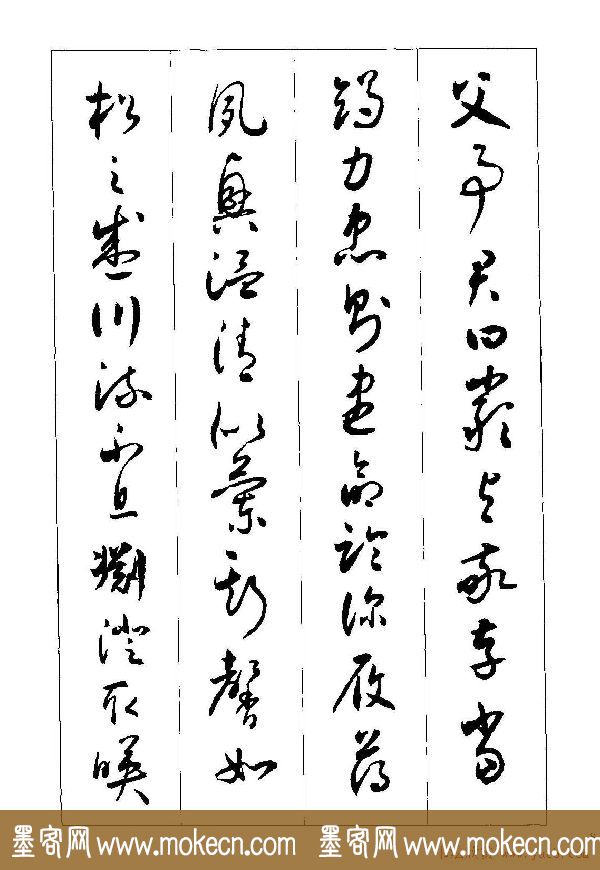 父事君曰嚴與敬孝當
竭力忠則盡命臨深履薄
夙興溫清似蘭斯馨如
松之盛川流不息淵澄取映
墨客网 www.mokecn.com 墨客网 www.mokecn.com